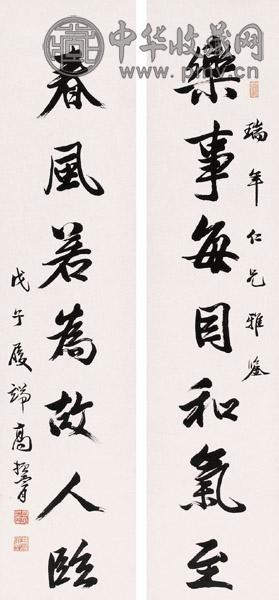 中华收藏网
瑞年仁兄雅鑒
樂事每因和氣至
春風若為故人臨
戊午履端高振霄